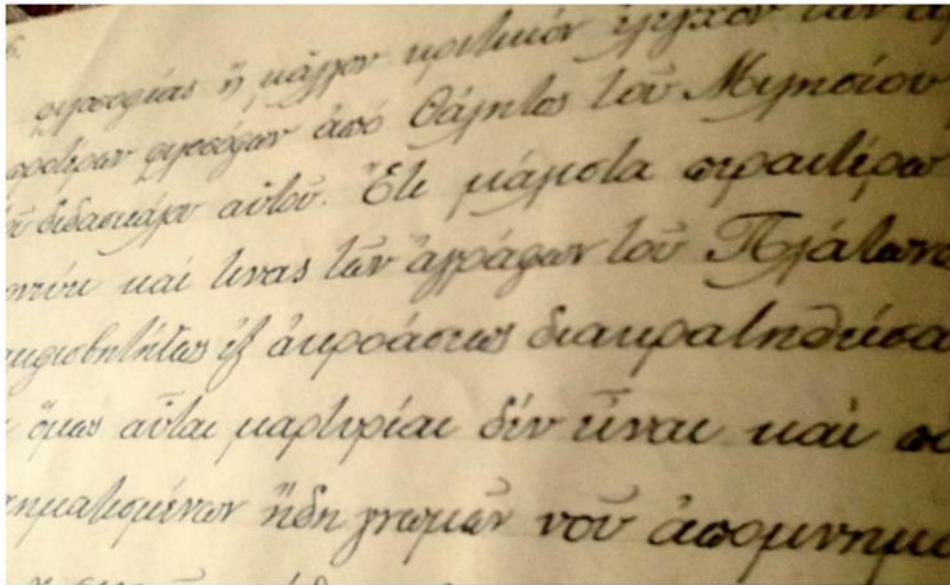 φιλοσοφίας ἢ μᾶλλον κριτικὸν ἔλεγχον τῶν
προτέρων φιλοσόφων ἀπὸ Θάλητος τοῦ Μιλησίου
διδασκάλου αὐτοῦ. Ἔτι μάλιστα περαιτέρω
καί τινας τῶν ἀγράφων τοῦ Πλάτωνος
ἀναμφισβητήτως ἐξ ἀκροάσεως διακρατηθείσα
ὅμως αὗται μαρτυρίαι δὲν εἶναι καὶ
σχηματισμένων ἤδη γνωμῶν τοῦ ἀπομνημο